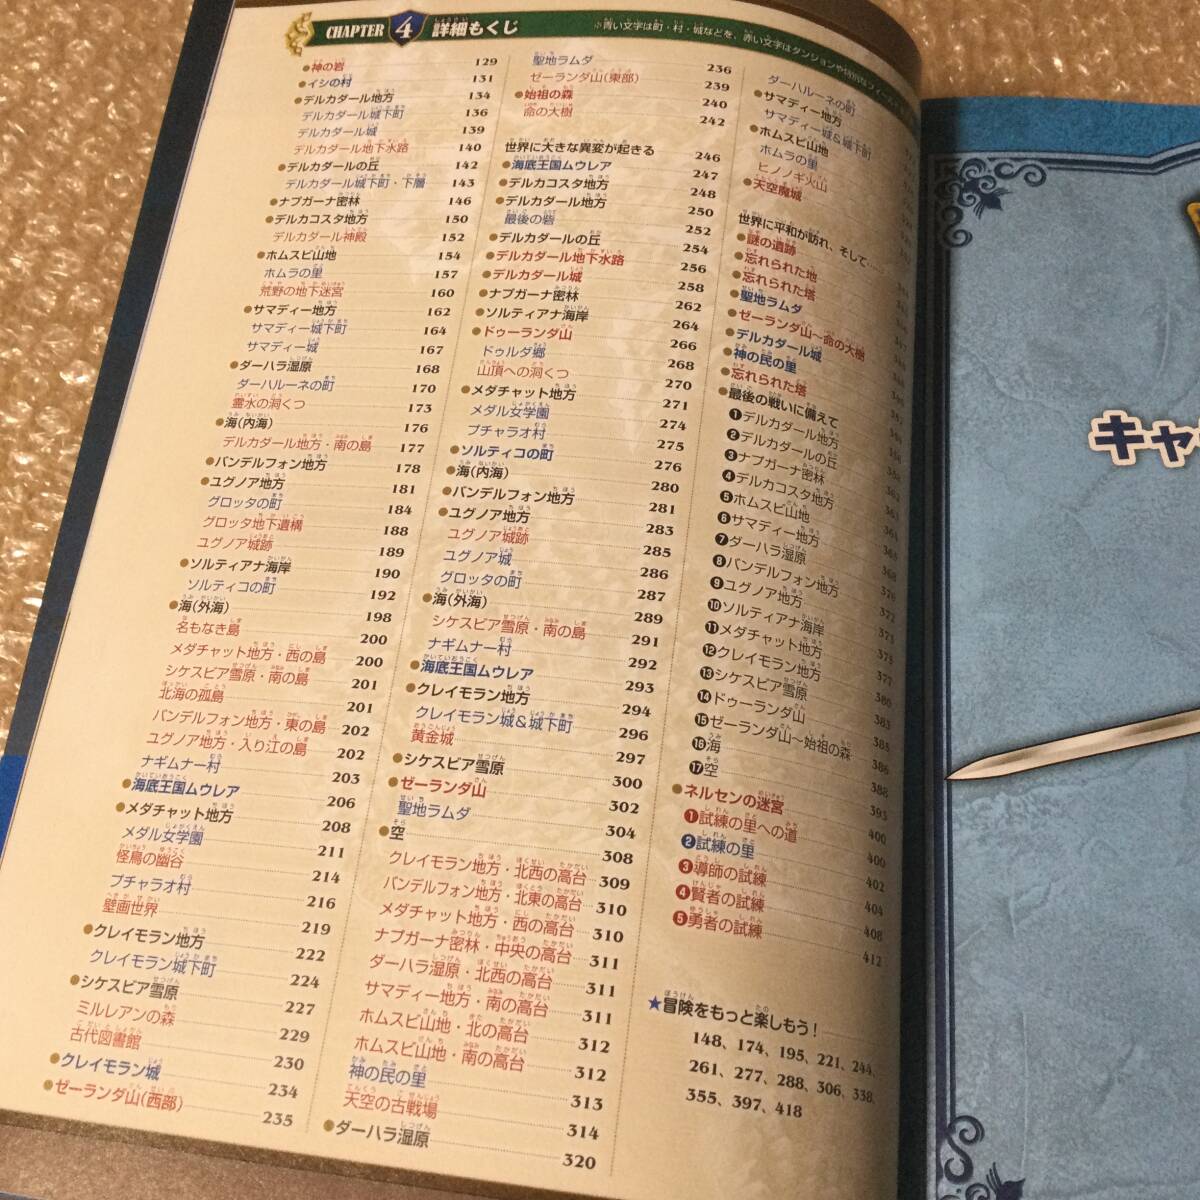 CHAPTER 4 詳細もくじ
※青い文字は町・村・城などを、赤い文字はダンジョンや特別なフィールド
●神の岩 129
●イシの村 131
●デルカダール地方 134
デルカダール城下町 136
デルカダール城 139
デルカダール地下水路 140
●デルカダールの丘 142
デルカダール城下町・下層 143
●ナプガーナ密林 146
●デルカコスタ地方 150
デルカダール神殿 152
●ホムスビ山地 154
ホムラの里 157
荒野の地下迷宮 160
●サマディー地方 162
サマディー城下町 164
サマディー城 167
●ダーハラ湿原 168
ダーハルーネの町 170
霊水の洞くつ 173
●海(内海) 176
デルカダール地方・南の島 177
●バンデルフォン地方 178
●ユグノア地方 181
グロッタの町 184
グロッタ地下遺構 188
ユグノア城跡 189
●ソルティアナ海岸 190
ソルティコの町 192
●海(外海) 198
名もなき島 200
メダチャット地方・西の島 200
シケスビア雪原・南の島 201
北海の孤島 201
バンデルフォン地方・東の島 202
ユグノア地方・入り江の島 202
ナギムナー村 203
●海底王国ムウレア 206
●メダチャット地方 208
メダル女学園 211
怪鳥の幽谷 214
プチャラオ村 216
壁画世界 219
●クレイモラン地方 222
クレイモラン城下町 224
●シケスビア雪原 227
ミルレアンの森 229
古代図書館 230
●クレイモラン城 234
●ゼーランダ山(西部) 235
聖地ラムダ 236
ゼーランダ山(東部) 239
●始祖の森 240
命の大樹 242
世界に大きな異変が起きる 246
●海底王国ムウレア 247
●デルカコスタ地方 248
●デルカダール地方 250
最後の砦 252
●デルカダールの丘 254
●デルカダール地下水路 256
●デルカダール城 258
●ナプガーナ密林 262
●ソルティアナ海岸 264
●ドゥーランダ山 266
ドゥルダ郷 268
山頂への洞くつ 270
●メダチャット地方 271
メダル女学園 274
プチャラオ村 275
●ソルティコの町 276
●海(内海) 280
●バンデルフォン地方 281
●ユグノア地方 283
ユグノア城跡 285
ユグノア城 286
グロッタの町 287
●海(外海) 289
シケスビア雪原・南の島 291
ナギムナー村 292
●海底王国ムウレア 293
●クレイモラン地方 294
クレイモラン城&城下町 296
黄金城 297
●シケスビア雪原 300
●ゼーランダ山 302
聖地ラムダ 304
●空 308
クレイモラン地方・北西の高台 309
バンデルフォン地方・北東の高台 310
メダチャット地方・西の高台 310
ナプガーナ密林・中央の高台 311
ダーハラ湿原・北西の高台 311
サマディー地方・南の高台 311
ホムスビ山地・北の高台 312
ホムスビ山地・南の高台 312
神の民の里 313
天空の古戦場 314
●ダーハラ湿原 320
ダーハルーネの町
●サマディー地方
サマディー城&城下町
●ホムスビ山地
ホムラの里
ヒノノギ火山
●天空魔城
世界に平和が訪れ、そして……
●謎の遺跡
●忘れられた地
●忘れられた塔
●聖地ラムダ
●ゼーランダ山〜命の大樹
●デルカダール城
●神の民の里
●忘れられた塔
●最後の戦いに備えて
❶デルカダール地方
❷デルカダールの丘
❸ナプガーナ密林
❹デルカコスタ地方
❺ホムスビ山地
❻サマディー地方
❼ダーハラ湿原
❽バンデルフォン地方
❾ユグノア地方
❿ソルティアナ海岸 375
⓫メダチャット地方 377
⓬クレイモラン地方 380
⓭シケスビア雪原 383
⓮ドゥーランダ山 385
⓯ゼーランダ山〜始祖の森 386
⓰海 388
⓱空 393
●ネルセンの迷宮 400
❶試練の里への道 400
❷試練の里 402
❸導師の試練 404
❹賢者の試練 408
❺勇者の試練 412
★冒険をもっと楽しもう!
148、174、195、221、244、
261、277、288、306、338、
355、397、418
キャ